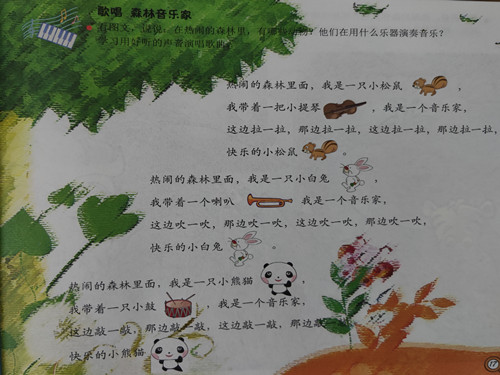 歌唱 森林音乐家
看图文，说说，在热闹的森林里，有哪些动物？他们在用什么乐器演奏音乐？
学习用好听的声音演唱歌曲。
热闹的森林里面，我是一只小松鼠，
我带着一把小提琴，我是一个音乐家，
这边拉一拉，那边拉一拉，这边拉一拉，那边拉一拉，
快乐的小松鼠。
热闹的森林里面，我是一只小白兔，
我带着一个喇叭，我是一个音乐家，
这边吹一吹，那边吹一吹，这边吹一吹，那边吹一吹，
快乐的小白兔。
热闹的森林里面，我是一只小熊猫，
我带着一只小鼓，我是一个音乐家，
这边敲一敲，那边敲一敲，这边敲一敲，那边敲
快乐的小熊猫